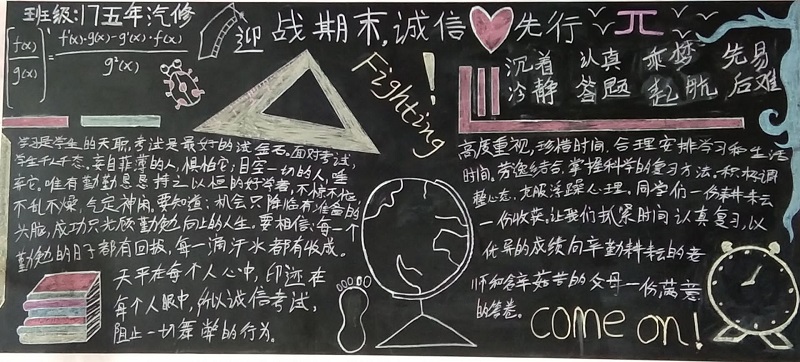 班级:17五年汽修
[f(x)/g(x)]' = f'(x)·g(x)-g'(x)·f(x) / g²(x)
迎战期末,诚信 先行
π
Fighting!
沉着 认真 乘梦 先易
冷静 答题 起航 后难
学习是学生的天职,考试是最好的试金石。面对考试,
学生千姿千态,妄自菲薄的人,惧怕它;目空一切的人,唾
弃它。唯有勤勤恳恳持之以恒的好学者,不惊不怕,
不乱不燥,气定神闲。要知道:机会只降临有准备的
头脑,成功只光顾勤勉向上的人生。要相信:每一个
勤勉的日子都有回报,每一滴汗水都有收成。
天平在每个人心中,印迹在
每个人眼中,所以诚信考试,
阻止一切舞弊的行为。
高度重视,珍惜时间,合理安排学习和生活
时间,劳逸结合,掌握科学的复习方法,积极调
整心态,克服浮躁心理,同学们一份耕耘
一份收获,让我们抓紧时间认真复习,以
优异的成绩向辛勤耕耘的老
师和含辛茹苦的父母一份满意
的答卷。
come on!